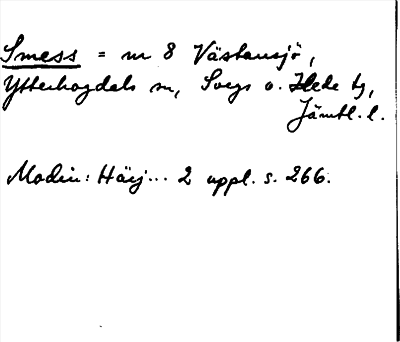 Smess = nr 8 Västansjö,
Ytterhogdals sn, Svegs o. Hede tg,
Jämtl. l.
Modin: Härj... 2 uppl. s. 266.